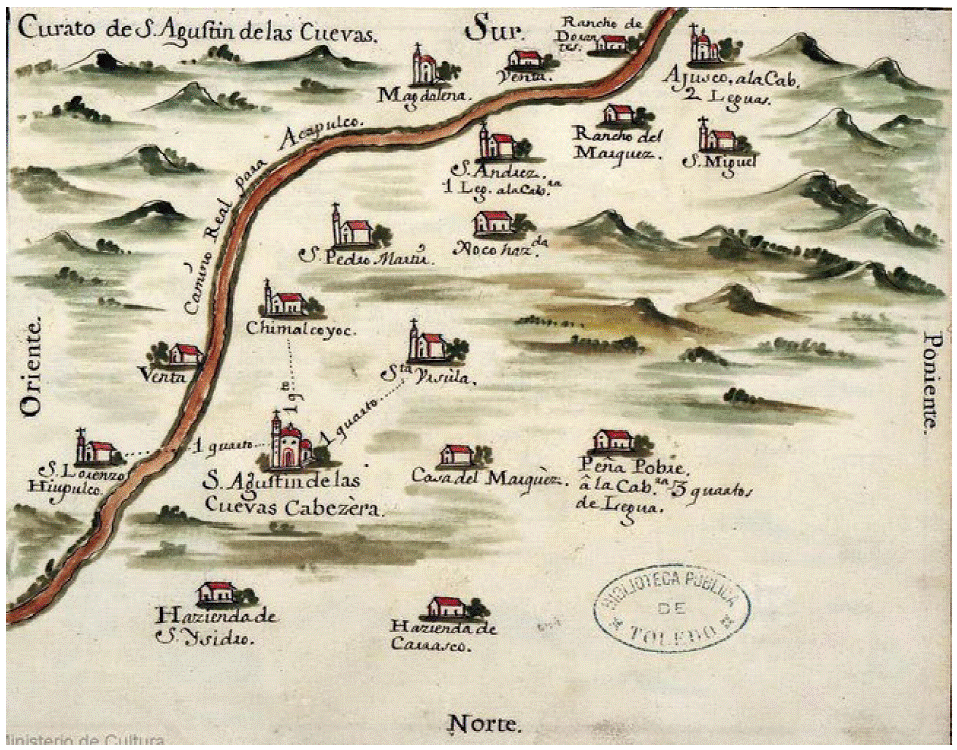 Curato de S. Agustin de las Cuevas.
Sur.
Rancho de
Doran
tes.
Venta.
Magdalena.
Ajusco, ala Cab.
2 Leguas.
Rancho del
Marquez.
S. Miguel
Camino Real para Acapulco.
S. Andrez.
1 Leg. ala Cab.ra
S. Pedro Martir.
haz.da
Chimalcoyoc.
Oriente.
Poniente.
Venta
Sta Vrsula.
1 quarto
1 quarto
S. Lorenzo
Hiupulco.
S. Agustin de las
Cuevas Cabezèra.
Casa del Marquèz.
Peña Pobre.
â la Cab.ra 3 quartos
de Legua.
Hazienda de
S. Ysidro.
Hazienda de
Carrasco.
BIBLIOTECA PUBLICA
DE
TOLEDO
Norte.
Ministerio de Cultura